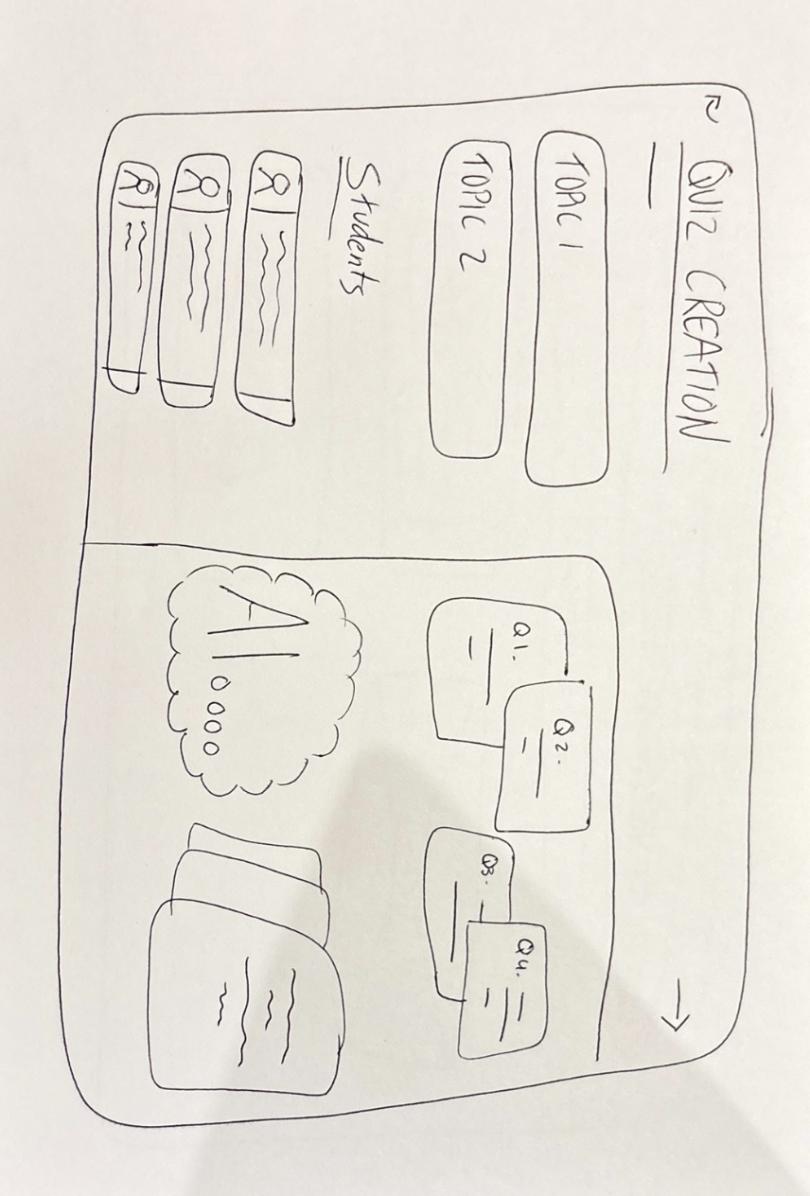 QUIZ CREATION
TOPIC 1
TOPIC 2
Students
Q1.
Q2.
Q3.
Q4.
AI